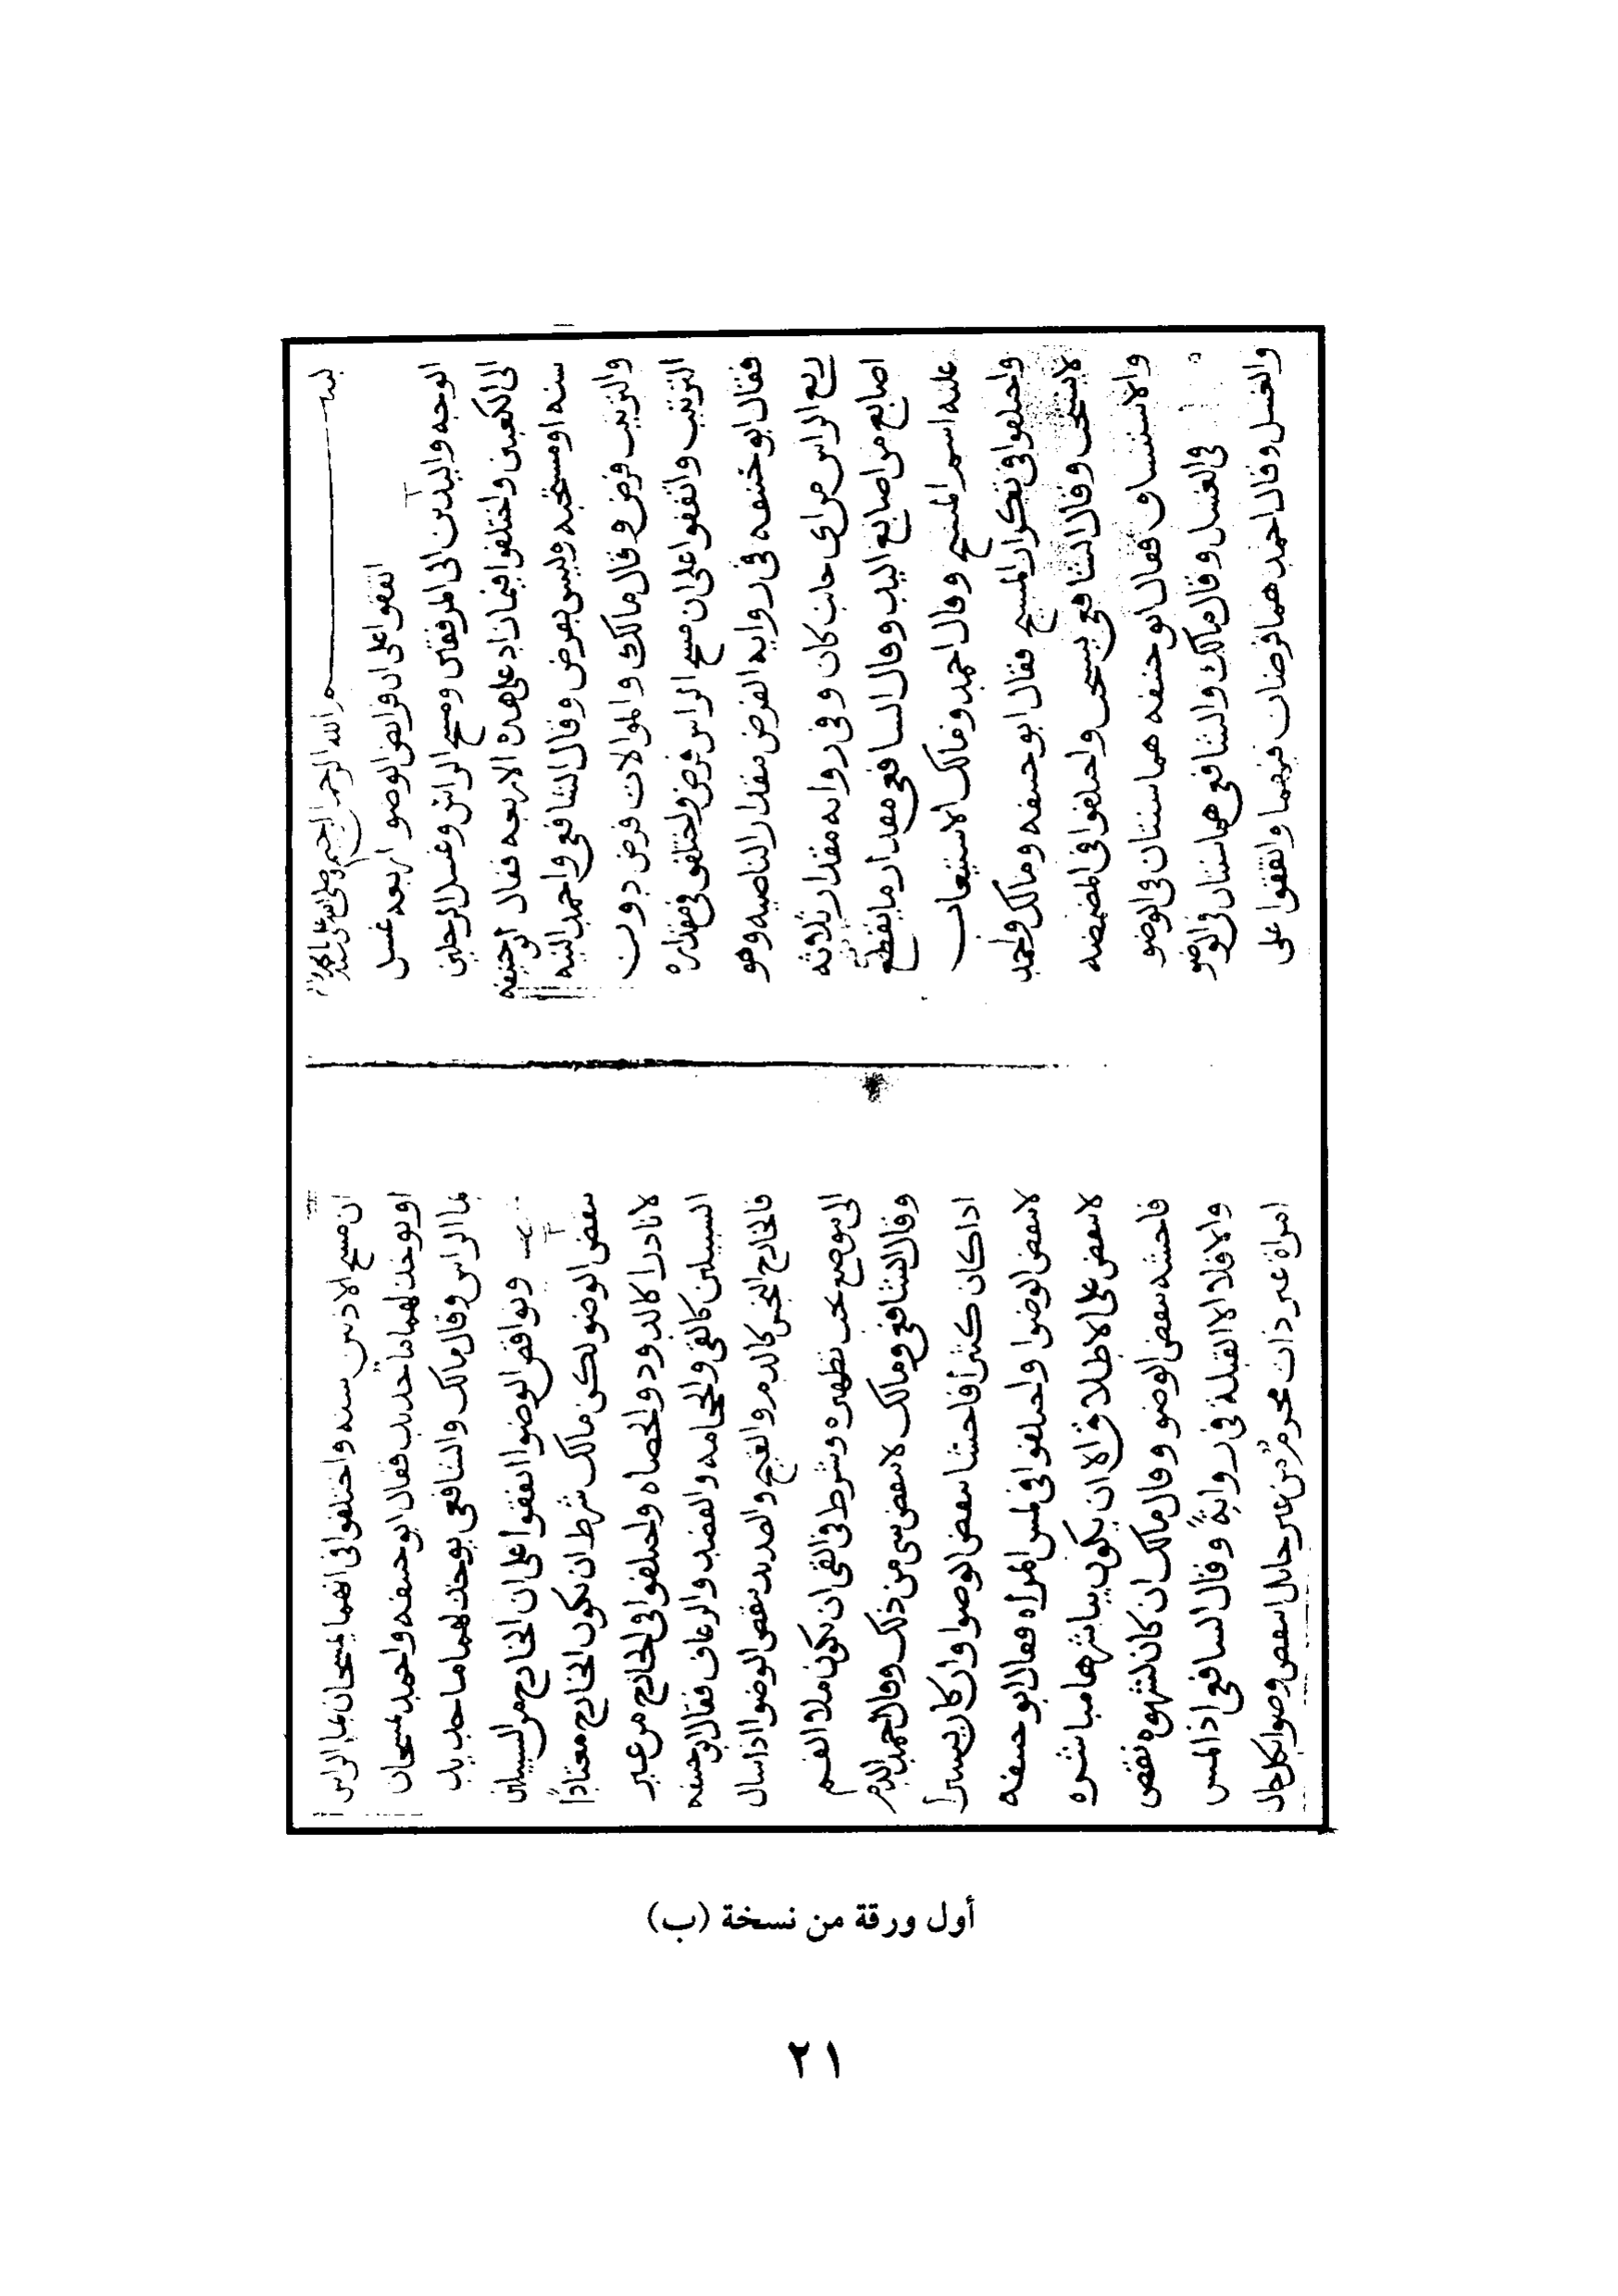 بسم الله الرحمن الرحيم وصلى الله على سيدنا محمد
اتفقوا على ان فرايض الوضو اربعه غسل
الوجه واليدين الى المرفقين ومسح الراس وغسل الرجلين
الى الكعبين واختلفوا فيما زاد على هذه الاربعه فقال ابو حنيفه
سنه او مستحبه وليس بفرض وقال الشافعي واحمد النيه
والترتيب فرض وقال مالك والموالات فرض دون
الترتيب واتفقوا على ان مسح الراس فرض واختلفو في مقداره
فقال ابو حنيفه في روايه الفرض مقدار الناصيه وهو
ربع الراس من اى جانب كان وفى روايه مقدار ثلاثه
اصابع من اصابع اليد وقال الشافعي مقدار ما يقطع
عليه اسم المسح وقال احمد ومالك الاستيعاب
واختلفوا في تكرار المسح فقال ابو حنيفه ومالك واحمد
لا يستحب وقال الشافعي يستحب واختلفوا فى المضمضه
والاستنشاق فقال ابو حنيفه هما سنتان في الوضو
في الغسل وقال مالك والشافعي هما سنتان في الوضو
والغسل وقال احمد هما فرضان فيهما واتفقوا على
ان مسح الاذنين سنه واختلفوا في انهما يمسحان بما الراس
او يوخذ لهما ما جديد فقال ابو حنيفه واحمد يمسحان
بما الراس وقال مالك والشافعي يوخذ لهما ما جديد
ونواقض الوضوا اتفقوا على ان الخارج من السبيلين
ينقض الوضو لكن مالك شرط ان يكون الخارج معتادا
لا نادرا كالدود والحصاه واختلفوا في الخارج من غير
السبيلين كالقي والحجامه والفصد والرعاف فقال ابو حنيفه
فالخارج النجس كالدم والقيح والصديد ينقض الوضوا اذا سال
الى موضع يجب تطهيره وشرط في القى ان يكون ملا الفم
وقال الشافعي ومالك لا ينقض شى من ذلك وقال احمد الدم
اذا كان كثيرا فاحشا ينقض الوضوا وان كان يسيرا
لا ينقض الوضوا واختلفوا في لمس المراه فقال ابو حنيفه
لا ينقض على الاطلاق الا ان يكون يباشرها مباشره
فاحشه ينقض الوضو وقال مالك ان كان لشهوه نقض
والا فلا الا القبلة في رواية وقال الشافعي اذا لمس
امراة غير ذات محرم من غير حايل انتقض وضوا بكل حال
أول ورقة من نسخة (ب)
٢١